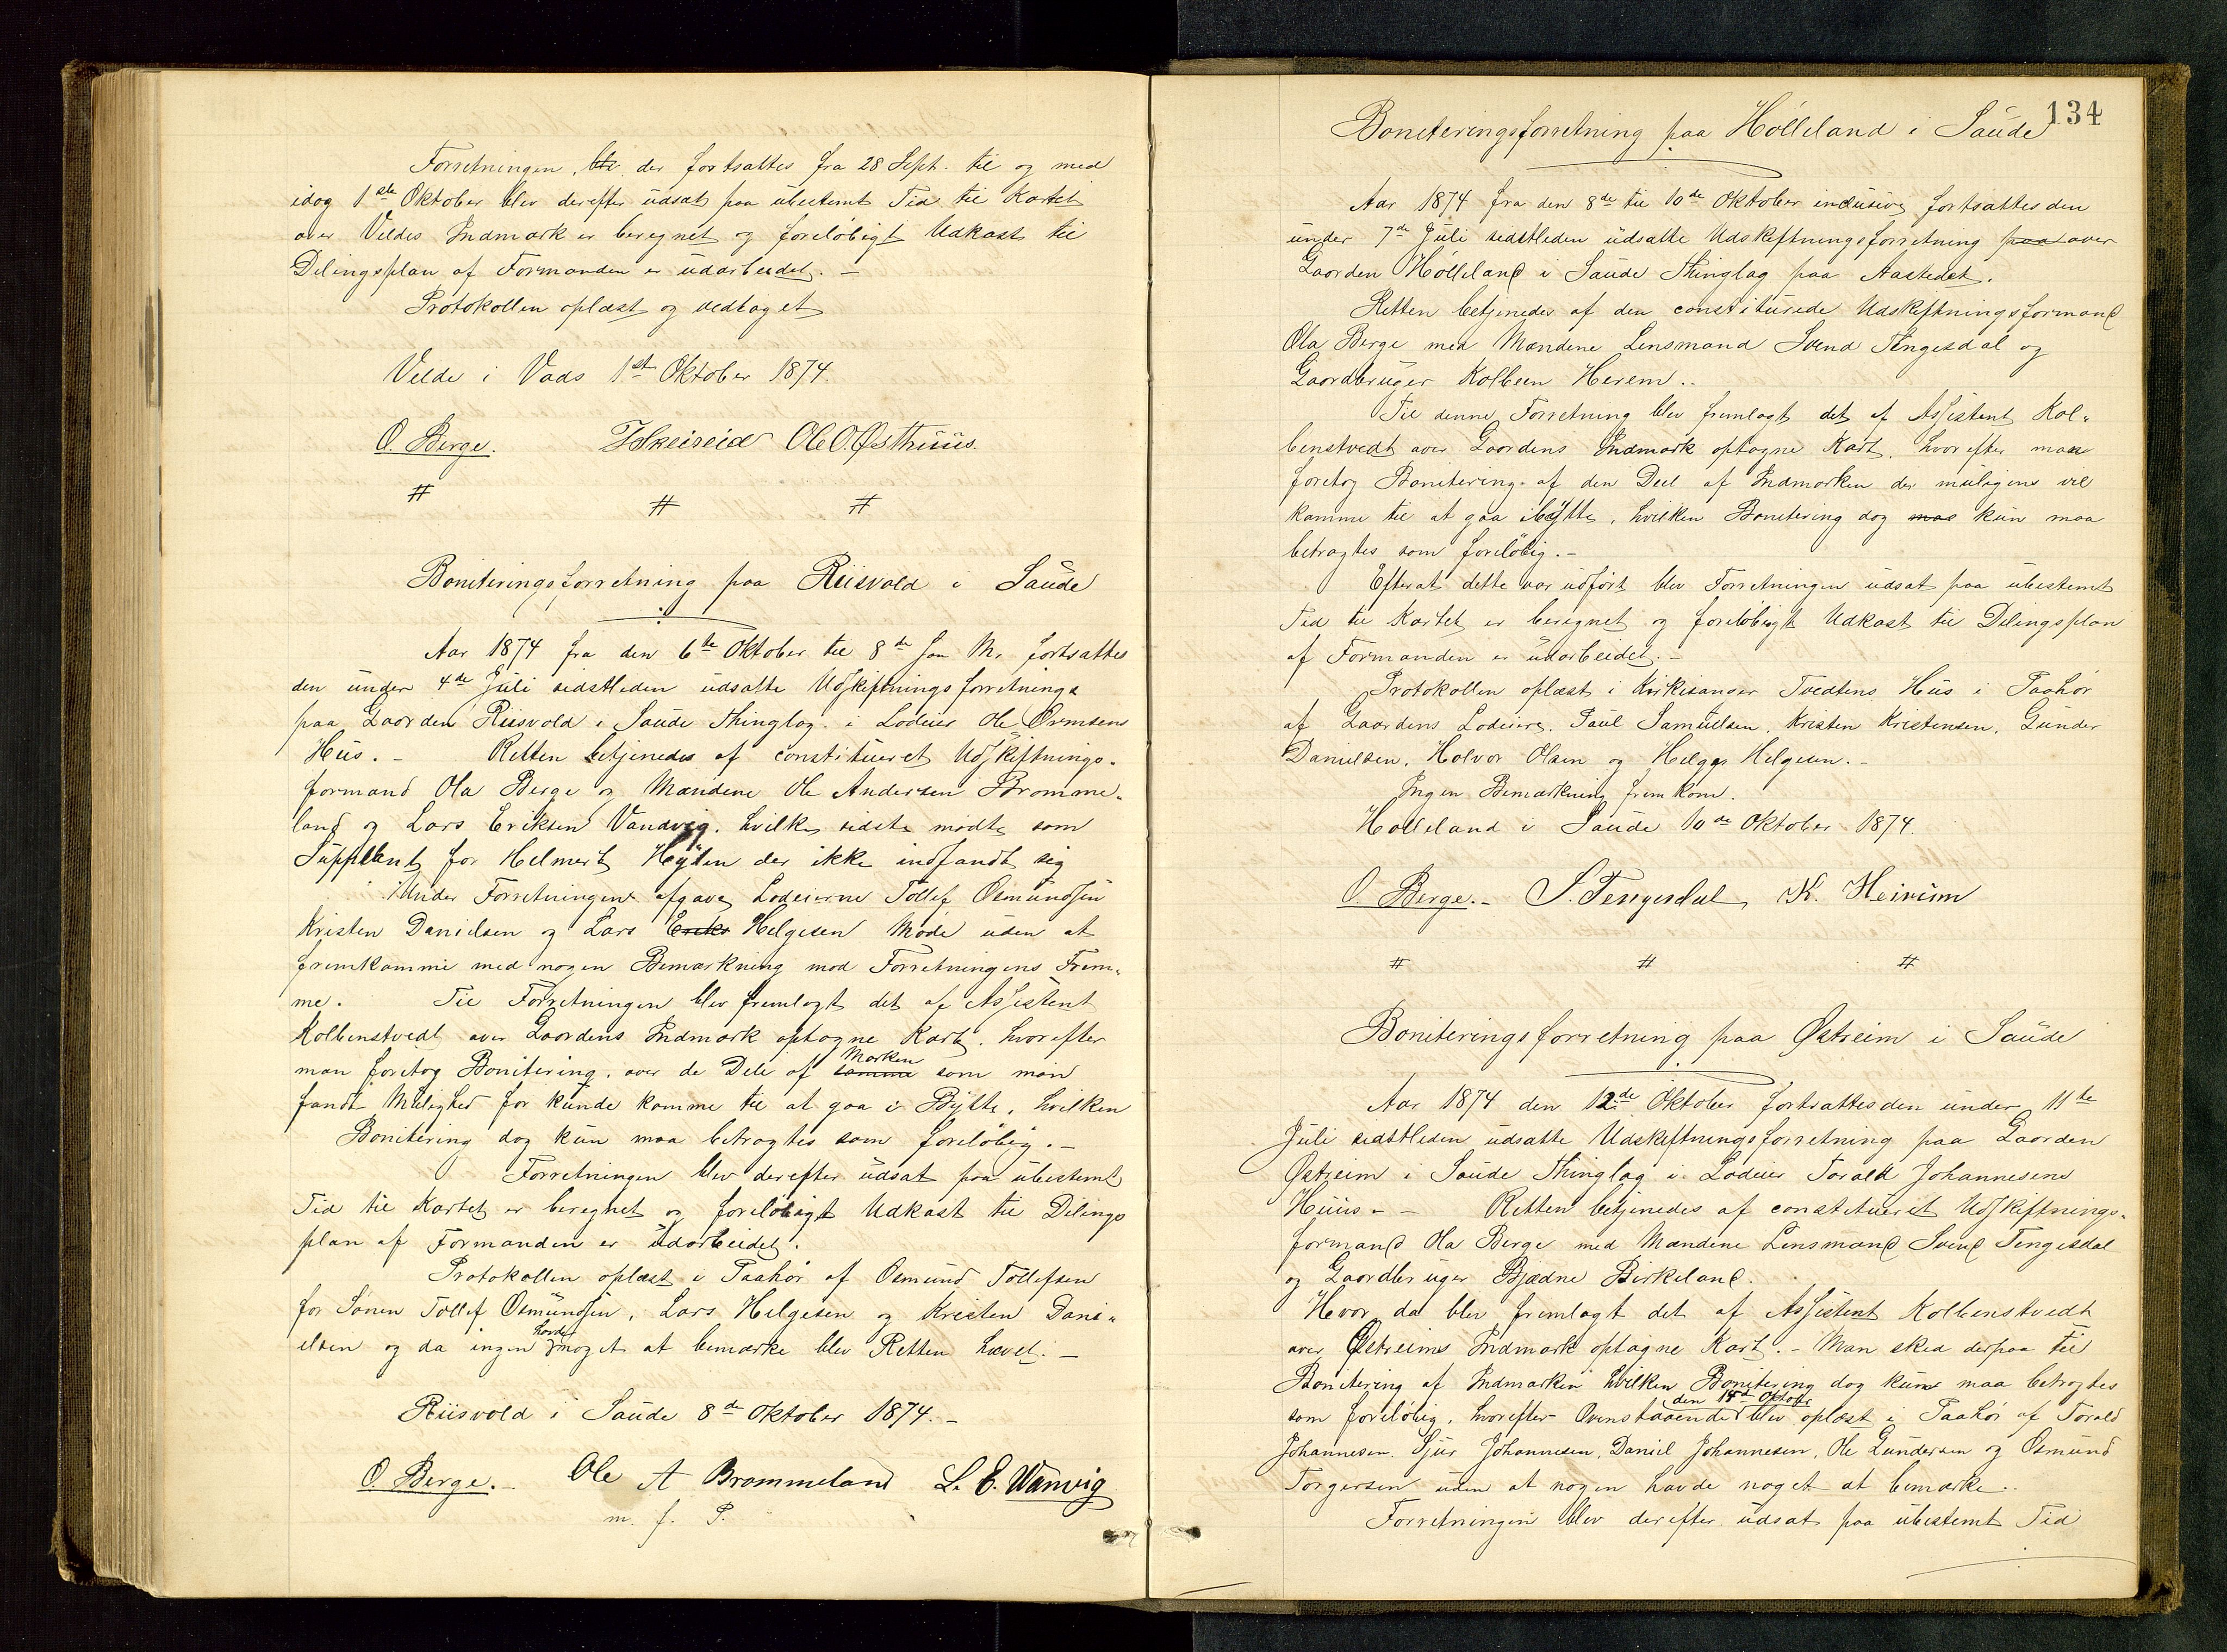 Forretningen, ble der fortsattes fra 28 Sept. til og med
idag 1ste Oktober blev derefter udsat paa ubestemt Tid til Kartet
over Veldes Indmark er beregnet og foreløbigt Udkast til
Delingsplan af Formanden er udarbeidet. —
Protokollen oplæst og vedtaget
Velde i Vads 1ste Oktober 1874.
O. Berge. T Skeiseid Ole O. Østhuus.
# # #
Boniteringsforretning paa Riisvold i Saude
Aar 1874 fra den 6te Oktober til 8de San M. fortsattes
den under 4de Juli sidstleden udsatte Udskiftningsforretnings
paa Gaarden Riisvold i Saude Thinglag i Lodeier Ole Ormsens
Hus. – Retten betjenedes af constitueret Udskiftnings-
formand Ola Berge og Mændene Ole Andersen Bromme-
land og Lars Eriksen Vandvig, hvilke sidste mødte som
Supplent for Helmert Høylen der ikke indfandt sig
Under Forretningen afgave Lodeierne Tollef Osmundsen
Kristen Danielsen og Lars Eriks Helgesen Møde uden at
fremkomme med nogen Bemærkning mod Forretningens Frem-
me. Til Forretningen blev fremlagt det af Assistent
Kolbenstvedt over Gaardens Indmark optagne Kart, hvorefter
man foretog Bonitering. over de Dele af samme Marken som man
fandt Mulighed for kunde komme til at gaa i Bytte, hvilken
Bonitering dog kun maa betragtes som foreløbig. –
Forretningen blev derefter udsat paa ubestemt
Tid til Kartet er beregnet og foreløbigt Udkast til Delings
plan af Formanden er udarbeidet.
Protokollen oplæst i Paahør af Osmund Tollefsen
for Sønen Tollef Osmundsen, Lars Helgesen og Kristen Dani-
elsen og da ingen havde noget at bemærke blev Retten hævet. —
Riisvold i Saude 8de Oktober 1874. –
O. Berge. – Ole A Brommeland L. E. Wanvig
m. f. P.
134
Boniteringsforretning paa Hølleland i Saude
Aar 1874 fra den 8de til 10de Oktober inclusive fortsattes den
under 7de Juli sidstleden udsatte Udskiftningsforretning paa over
Gaarden Hølleland i Saude Thinglag paa Aastedet.
Retten betjenedes af den constituerede Udskiftningsformand
Ola Berge med Mændene Lensmand Svend Tengesdal og
Gaardbruger Kolbein Herem..
Til denne Forretning blev fremlagt det af Assistent Kol-
benstvedt over Gaardens Indmark optagne Kart, hvorefter man
foretog Bonitering af den Deel af Indmarken der muligens vil
komme til at gaa i Bytte, hvilken Bonitering dog maa kun maa
betragtes som foreløbig. –
Efterat dette var udført blev Forretningen udsat paa ubestemt
Tid til Kartet er beregnet og foreløbigt Udkast til Delingsplan
af Formanden er udarbeidet. –
Protokollen oplæst i Kirkesanger Tvedtens Hus i Paahør
af Gaardens Lodeiere, Paul Samuelsen, Kristen Kristensen, Gunder
Danielsen, Holvor Olsen og Helge Helgesen. –
Ingen Bemærkning fremkom.
Hølleland i Saude 10de Oktober 1874.
O. Berge. – S. Tengesdal K. Heirum
# # #
Boniteringsforretning paa Østreim i Saude
Aar 1874 den 12de Oktober fortsattes den under 11te
Juli sidstleden udsatte Udskiftningsforretning paa Gaarden
Østreim i Saude Thinglag i Lodeier Torald Johannesens
Huus. – Retten betjenedes af constitueret Udskiftnings-
formand Ola Berge med Mændene Lensmand Svend Tengesdal
og Gaardbruger Bjædne Birkeland.
Hvor da blev fremlagt det af Assistent Kolbenstvedt
over Østreims Indmark optagne Kart. – Man sked derpaa til
Bonitering af Indmarken hvilken Bonitering dog kun maa betragtes
som foreløbig, hvorefter Ovenstaaende den 15de Oktob blev oplæst i Paahør af Torald
Johannesen, Sjur Johannesen, Daniel Johannesen, Ole Gundersen og Osmund
Torgersen uden at nogen havde noget at bemærke..
Forretningen blev derefter udsat paa ubestemt Tid